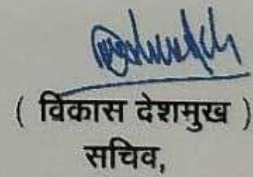 ( विकास देशमुख )
सचिव,